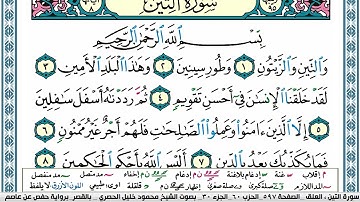 سُورَةُ التِّينِ
بِسْمِ اللَّهِ الرَّحْمَٰنِ الرَّحِيمِ
وَالتِّينِ وَالزَّيْتُونِ ١ وَطُورِ سِينِينَ ٢ وَهَٰذَا الْبَلَدِ الْأَمِينِ ٣
لَقَدْ خَلَقْنَا الْإِنسَانَ فِي أَحْسَنِ تَقْوِيمٍ ٤ ثُمَّ رَدَدْنَاهُ أَسْفَلَ سَافِلِينَ
٥ إِلَّا الَّذِينَ آمَنُوا وَعَمِلُوا الصَّالِحَاتِ فَلَهُمْ أَجْرٌ غَيْرُ مَمْنُونٍ ٦
فَمَا يُكَذِّبُكَ بَعْدُ بِالدِّينِ ٧ أَلَيْسَ اللَّهُ بِأَحْكَمِ الْحَاكِمِينَ ٨
إقلاب غنة إدغام بلاغنة إدغام إخفاء مد متصل مد منفصل
مد اللازم
سورة التين ، العلق الصفحة ٥٩٧ الحزب ٦٠ الجزء ٣٠ بصوت الشيخ محمود خليل الحصري بالقصر برواية حفص عن عاصم